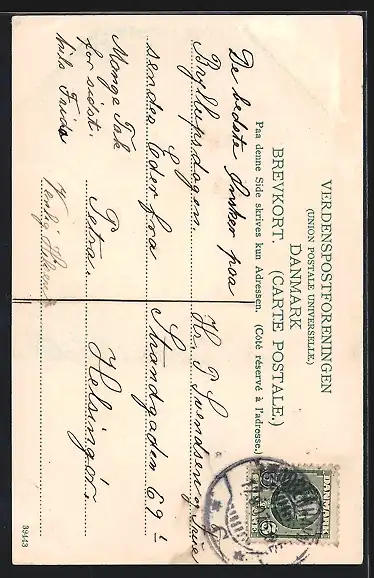 VERDENSPOSTFORENINGEN
(UNION POSTALE UNIVERSELLE.)
DANMARK
BREVKORT. (CARTE POSTALE.)
Paa denne Side skrives kun Adressen. (Côté réservé à l'adresse.)
De bedste Ønsker paa
Bryllupsdagen.
sendes Eder fra
Petra.
Mange Tak
for sidst.
hils Frida
Venlig Hilsen
Hr. P. Svendsen og Frue
Strandgaden 69
Helsingør.
DANMARK
5
39443